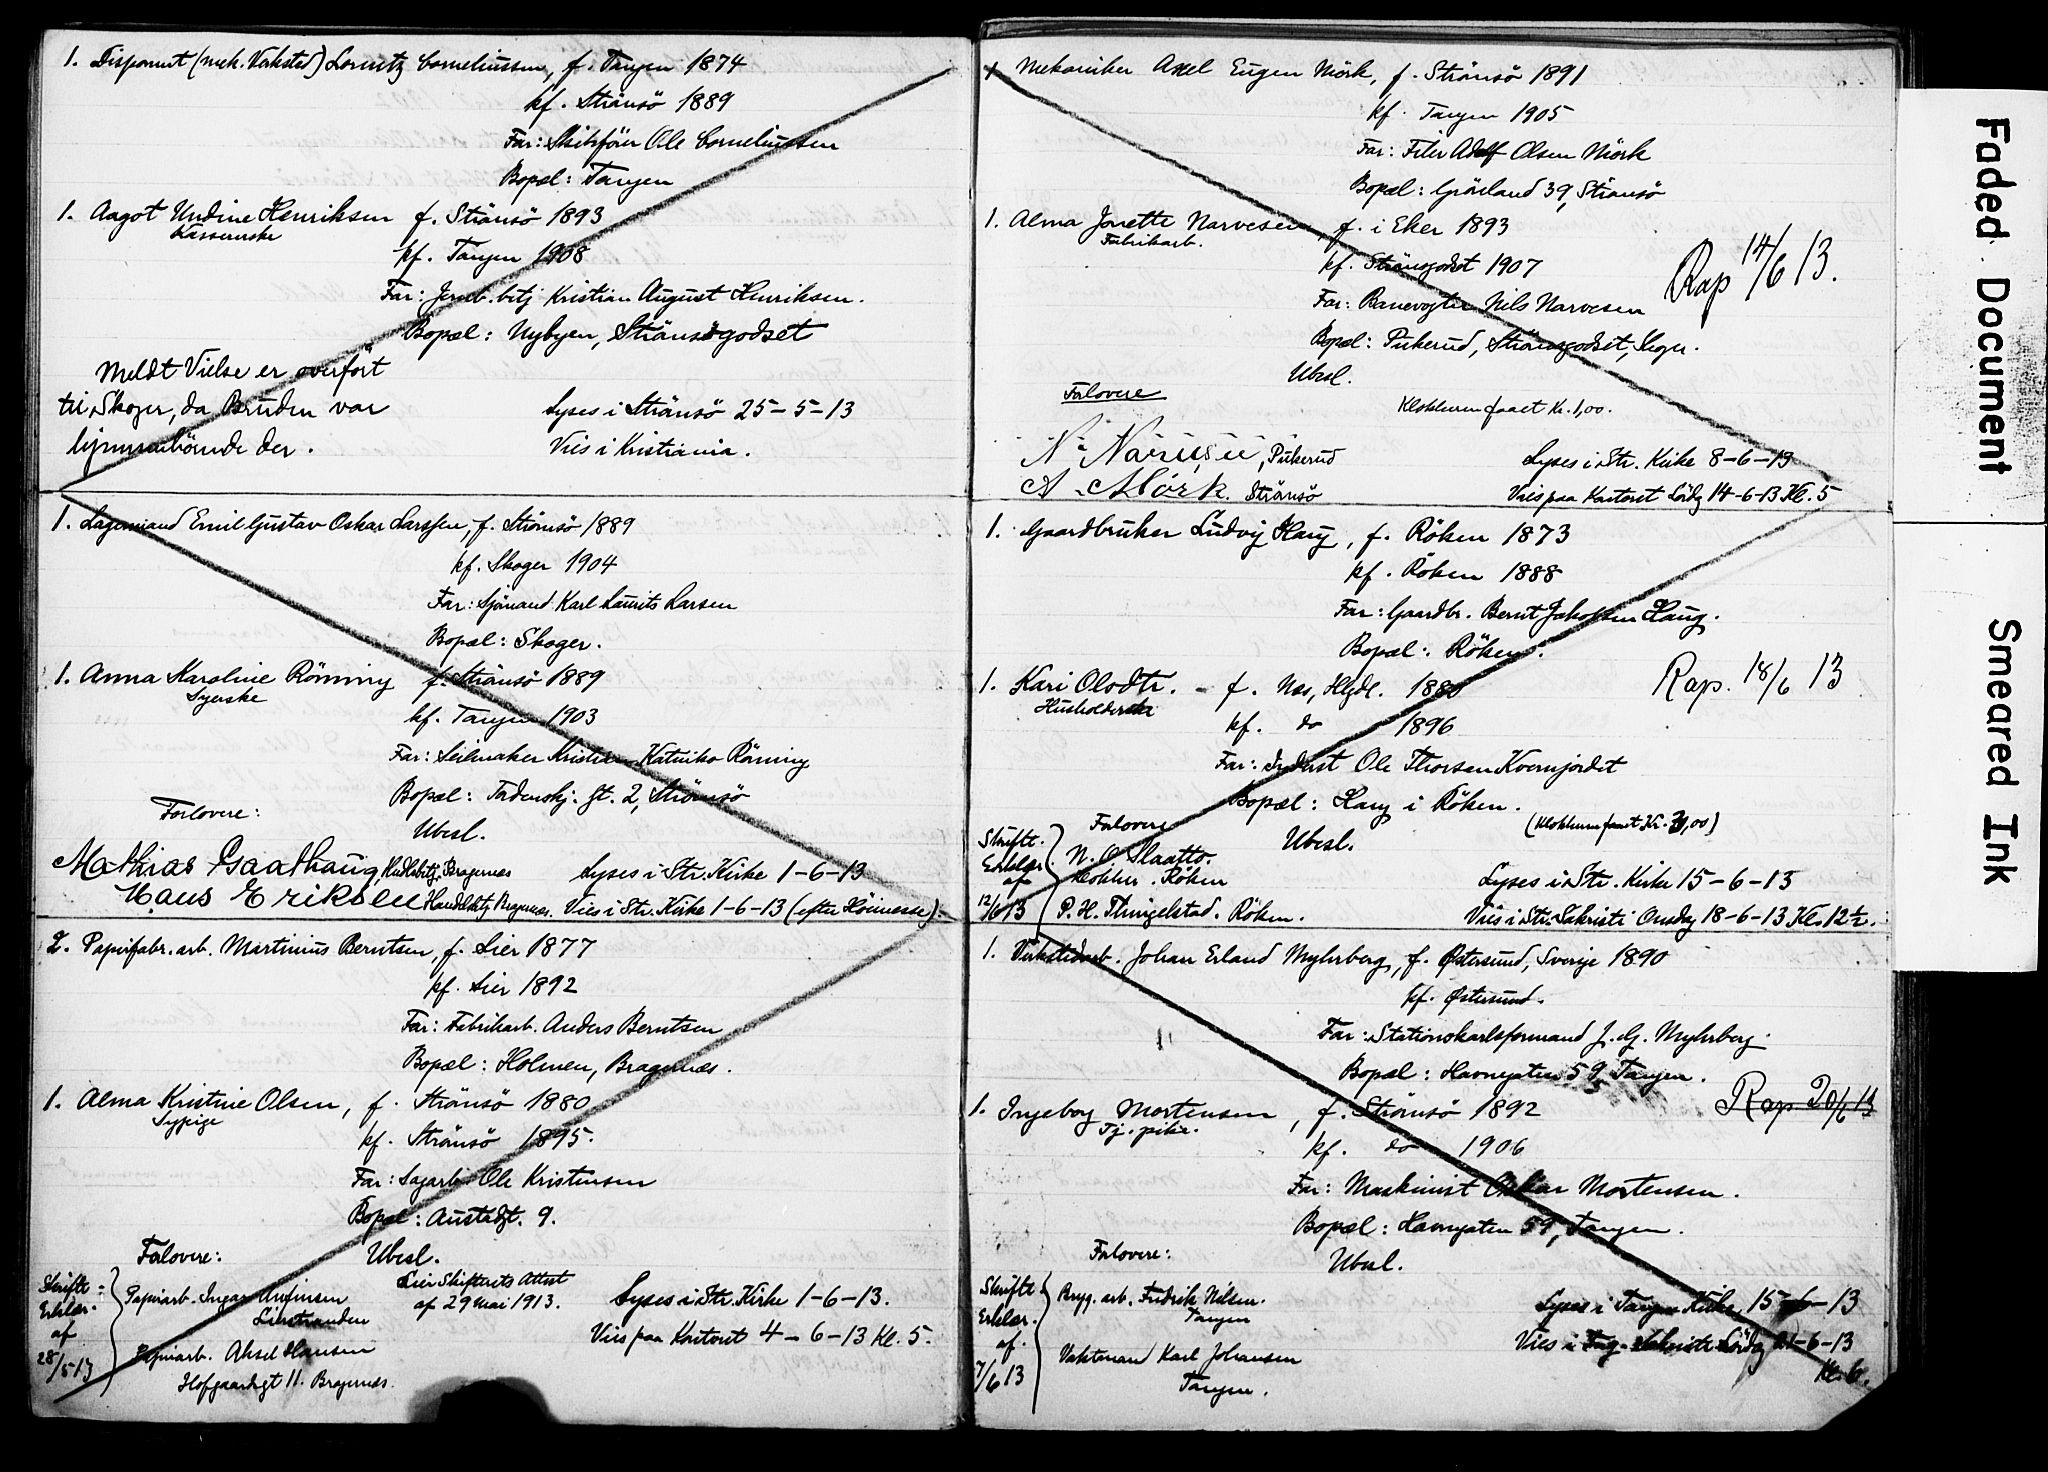 1. Disponent (mek. Verksted) Lorentz Corneliussen, f. Tangen 1874
kf. Strömsö 1889
Far: Skibsförer Ole Corneliussen
Bopæl: Tangen
1. Aagot Undine Henriksen f. Strömsö 1893
Kassererske
kf. Tangen 1908
Far: Jernb. betj. Kristian August Henriksen.
Bopæl: Nybyen, Strömsgodset
Meldt Vielse er overfört
til Skoger, da Bruden var
hjemmehörende der.
Lyses i Strömsö 25-5-13
Vies i Kristiania.
1. Lagermand Emil Gustav Oskar Larssen, f. Strömsö 1889
kf. Skoger 1904
Far: Sjömand Karl Laurits Larsen
Bopæl: Skoger.
1. Anna Karoline Rönning f. Strömsö 1889
Syerske
kf. Tangen 1903
Far: Seilmaker Kristian Rönning
Bopæl: Tordenskj. gt. 2, Strömsö
Ubesl.
Forlovere:
Mathias Gaathaug, Hndlsbetj. Bragernæs
Hans Eriksen Handelsbetj. Bragernæs.
Lyses i Str. Kirke 1-6-13
Vies i Str. Kirke 1-6-13 (efter Höimesse).
2. Papirfabr. arb. Martinius Berntsen, f. Lier 1877
kf. Lier 1892
Far: Fabrikarb. Anders Berntsen
Bopæl: Holmen, Bragernæs.
1. Alma Kristine Olsen, f. Strömsö 1880
Sypige
kf. Strömsö 1895.
Far: Sagarb. Ole Kristensen
Bopæl: Austadgt. 9.
Ubesl.
Forlovere:
Skriftl. Erklær. af 28/5 13
Papirarb. Ingar
Lierstranden
Papirarb. Aksel Hansen
Hofgaardsgt 11. Bragernæs.
Lier Skifterets Attest
af 29 mai 1913.
Lyses i Str. Kirke 1-6-13.
Vies paa Kontoret 4-6-13 Kl. 5.
1 Mekaniker Axel Eugen Mörk, f. Strömsö 1891
kf. Tangen 1905
Far: Filer Adolf Olsen Mörk
Bopæl: Grönland 39, Strömsö
1. Alma Jonette Narvesen, f. i Eker 1893
Fabrikarb.
kf. Strömsgodset 1907
Far: Banevogter Nils Narvesen
Bopæl: Pukerud, Strömsgodset, Skoger.
Ubesl.
Rap 14/6 13.
Forlovere
Klokkeren faaet Kr. 1,00.
N. Narvesen, Pukerud
A. Mörk. Strömsö
Lyses i Str. Kirke 8-6-13
Vies paa Kontoret Lördg 14-6-13 Kl. 5
1. Gaardbruker Ludvig Haug, f. Röken 1873
kf. Röken 1888
Far: Gaardbr. Bernt Jakobsen Haug.
Bopæl: Röken.
1. Kari Olsdtr. f. Næs, Hlgdl. 1880
Husholderske
kf. do 1896
Far: Inderst Ole Thorsen Kvernjordet
Bopæl: Haug i Röken.
Ubesl.
Rap. 18/6 13
(Klokkeren faaet Kr. ,00)
Forlovere
Skriftl. Erklær. af 12/6 13
N. O. Slaatto.
Klokker. Röken
P. H. Thingelstad. Röken.
Lyses i Str. Kirke 15-6-13
Vies i Str. Sakristi Onsdag 18-6-13 Kl. 12½.
1. Verkstedarb. Johan Erland Myhrberg, f. Østersund, Sverige 1890
kf. Østersund.
Far: Stationskarlsformand J. G. Myhrberg.
Bopæl: Havnegaten 59, Tangen.
1. Ingeborg Mortensen, f. Strömsö 1892
Tj. pike.
kf. do 1906
Far: Maskinist Oskar Mortensen.
Bopæl: Havnegaten 59, Tangen.
Ubesl.
Rap 20/6 13
Forlovere:
Skriftl. Erklær. af 7/6 13
Bryg. arb. Fredrik Nilsen.
Tangen
Vaktmand Karl Johansen
Tangen.
Lyses i Tangen Kirke 15-6-13
Vies i Tng. Sakristi Lördg 21-6-13
Kl. 6.
Faded Document
Smeared Ink